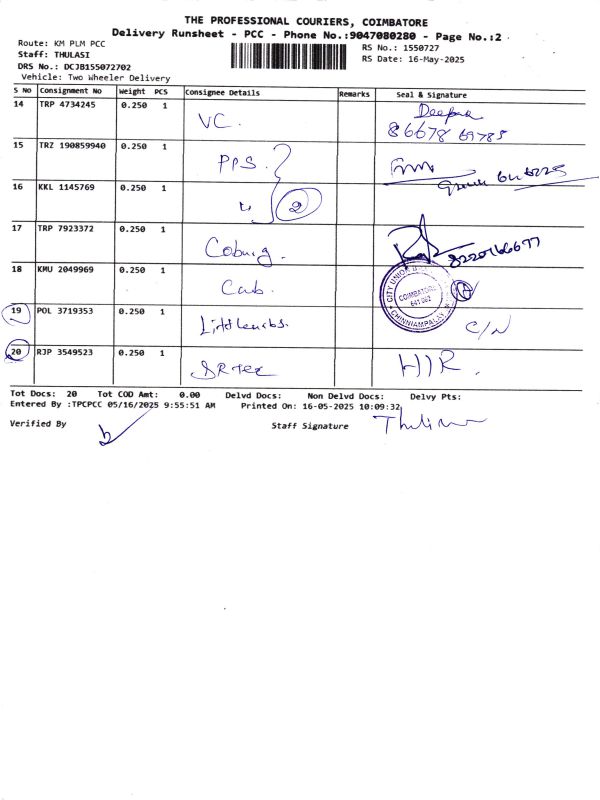 THE PROFESSIONAL COURIERS, COIMBATORE
Delivery Runsheet - PCC - Phone No.:9047080280 - Page No.:2
Route: KM PLM PCC
Staff: THULASI
DRS No.: DCJB155072702
Vehicle: Two Wheeler Delivery
RS No.: 1550727
RS Date: 16-May-2025
S No Consignment No Weight PCS Consignee Details Remarks Seal & Signature
14 TRP 4734245 0.250 1 VC. Deepa
86678 69785
15 TRZ 190859940 0.250 1 PPS.
16 KKL 1145769 0.250 1 2
17 TRP 7923372 0.250 1 Coburg. 8220166677
18 KMU 2049969 0.250 1 Cub. CITY UNION COIMBATORE CHINNIAMPALAY
19 POL 3719353 0.250 1 C/N
20 RJP 3549523 0.250 1 SRTex H/R.
Tot Docs: 20 Tot COD Amt: 0.00 Delvd Docs: Non Delvd Docs: Delvy Pts:
Entered By :TPCPCC 05/16/2025 9:55:51 AM Printed On: 16-05-2025 10:09:32
Verified By Staff Signature